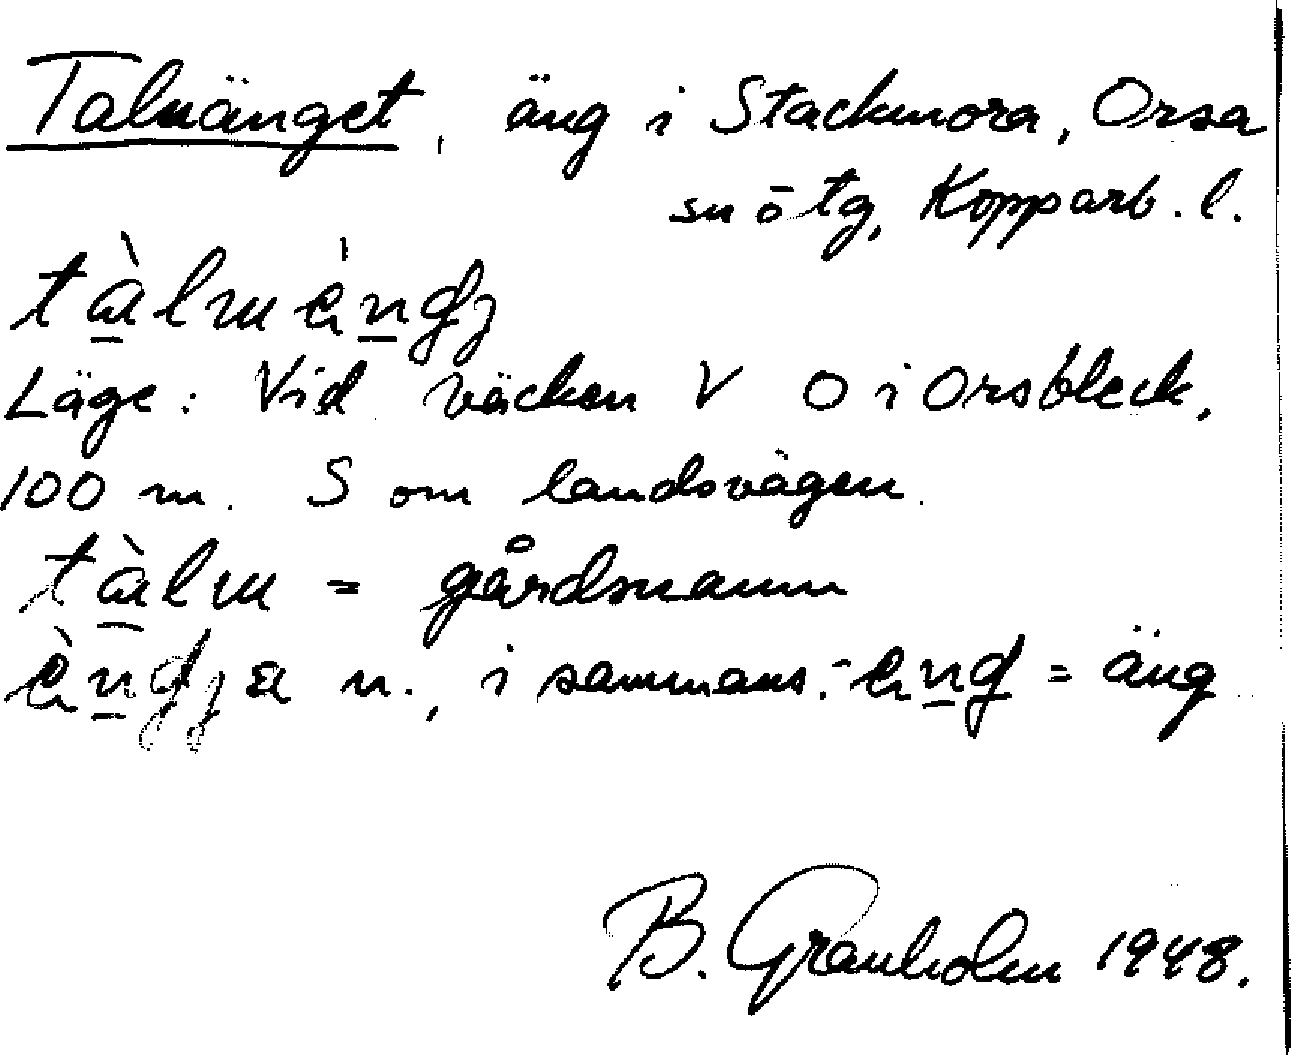 Talmänget, äng i Stackmora, Orsa
sn ö tg, Kopparb. l.
tàlmèngj
Läge: Vid bäcken V O i Orsbleck,
100 m. S om landsvägen.
tàlm = gårdsnamn
èngja n., i sammans. -eng = äng
B. Granholm 1948.